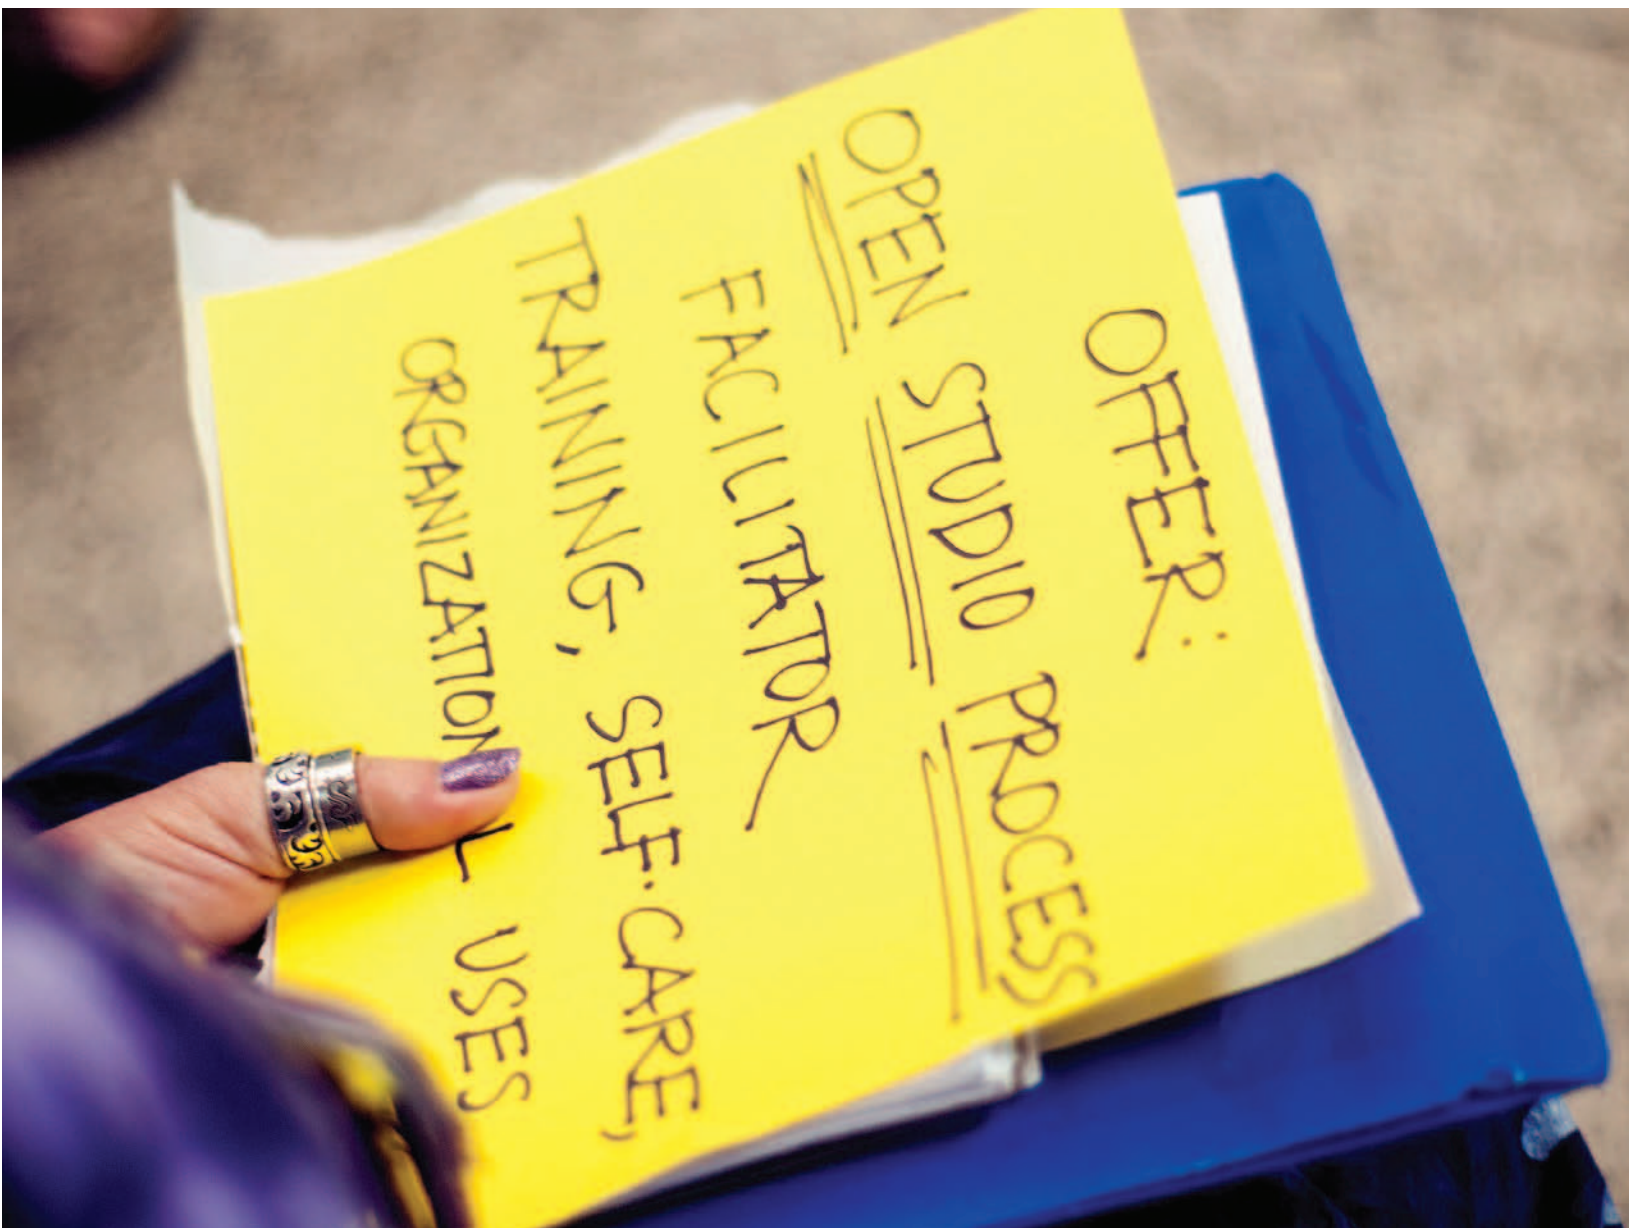 OFFER:
OPEN STUDIO PROCESS
FACILITATOR
TRAINING, SELF-CARE,
ORGANIZATIONAL USES